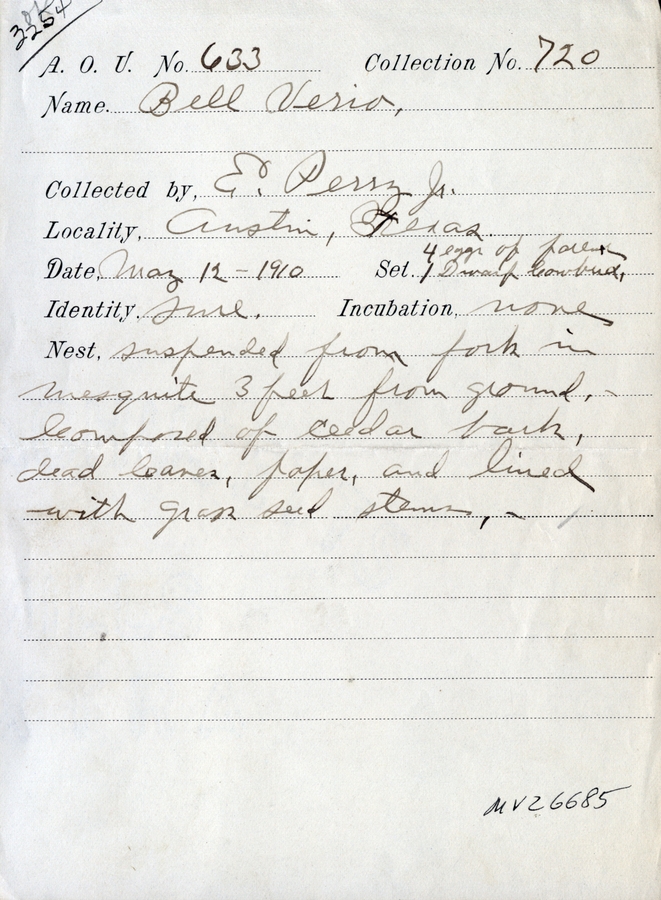 3254
A. O. U. No. 633 Collection No. 720
Name. Bell Verio,
Collected by, E. Perry Jr.
Locality, Austin, Texas.
4 eggs of parent
Date, May 12 - 1910 Set. 1 Dwarf Cowbird,
Identity, sure. Incubation, none
Nest, suspended from fork in
mesquite 3 feet from ground, -
Composed of ceedar bark,
dead leaves, paper, and lined
with grass seed stems, -
MVZ6685